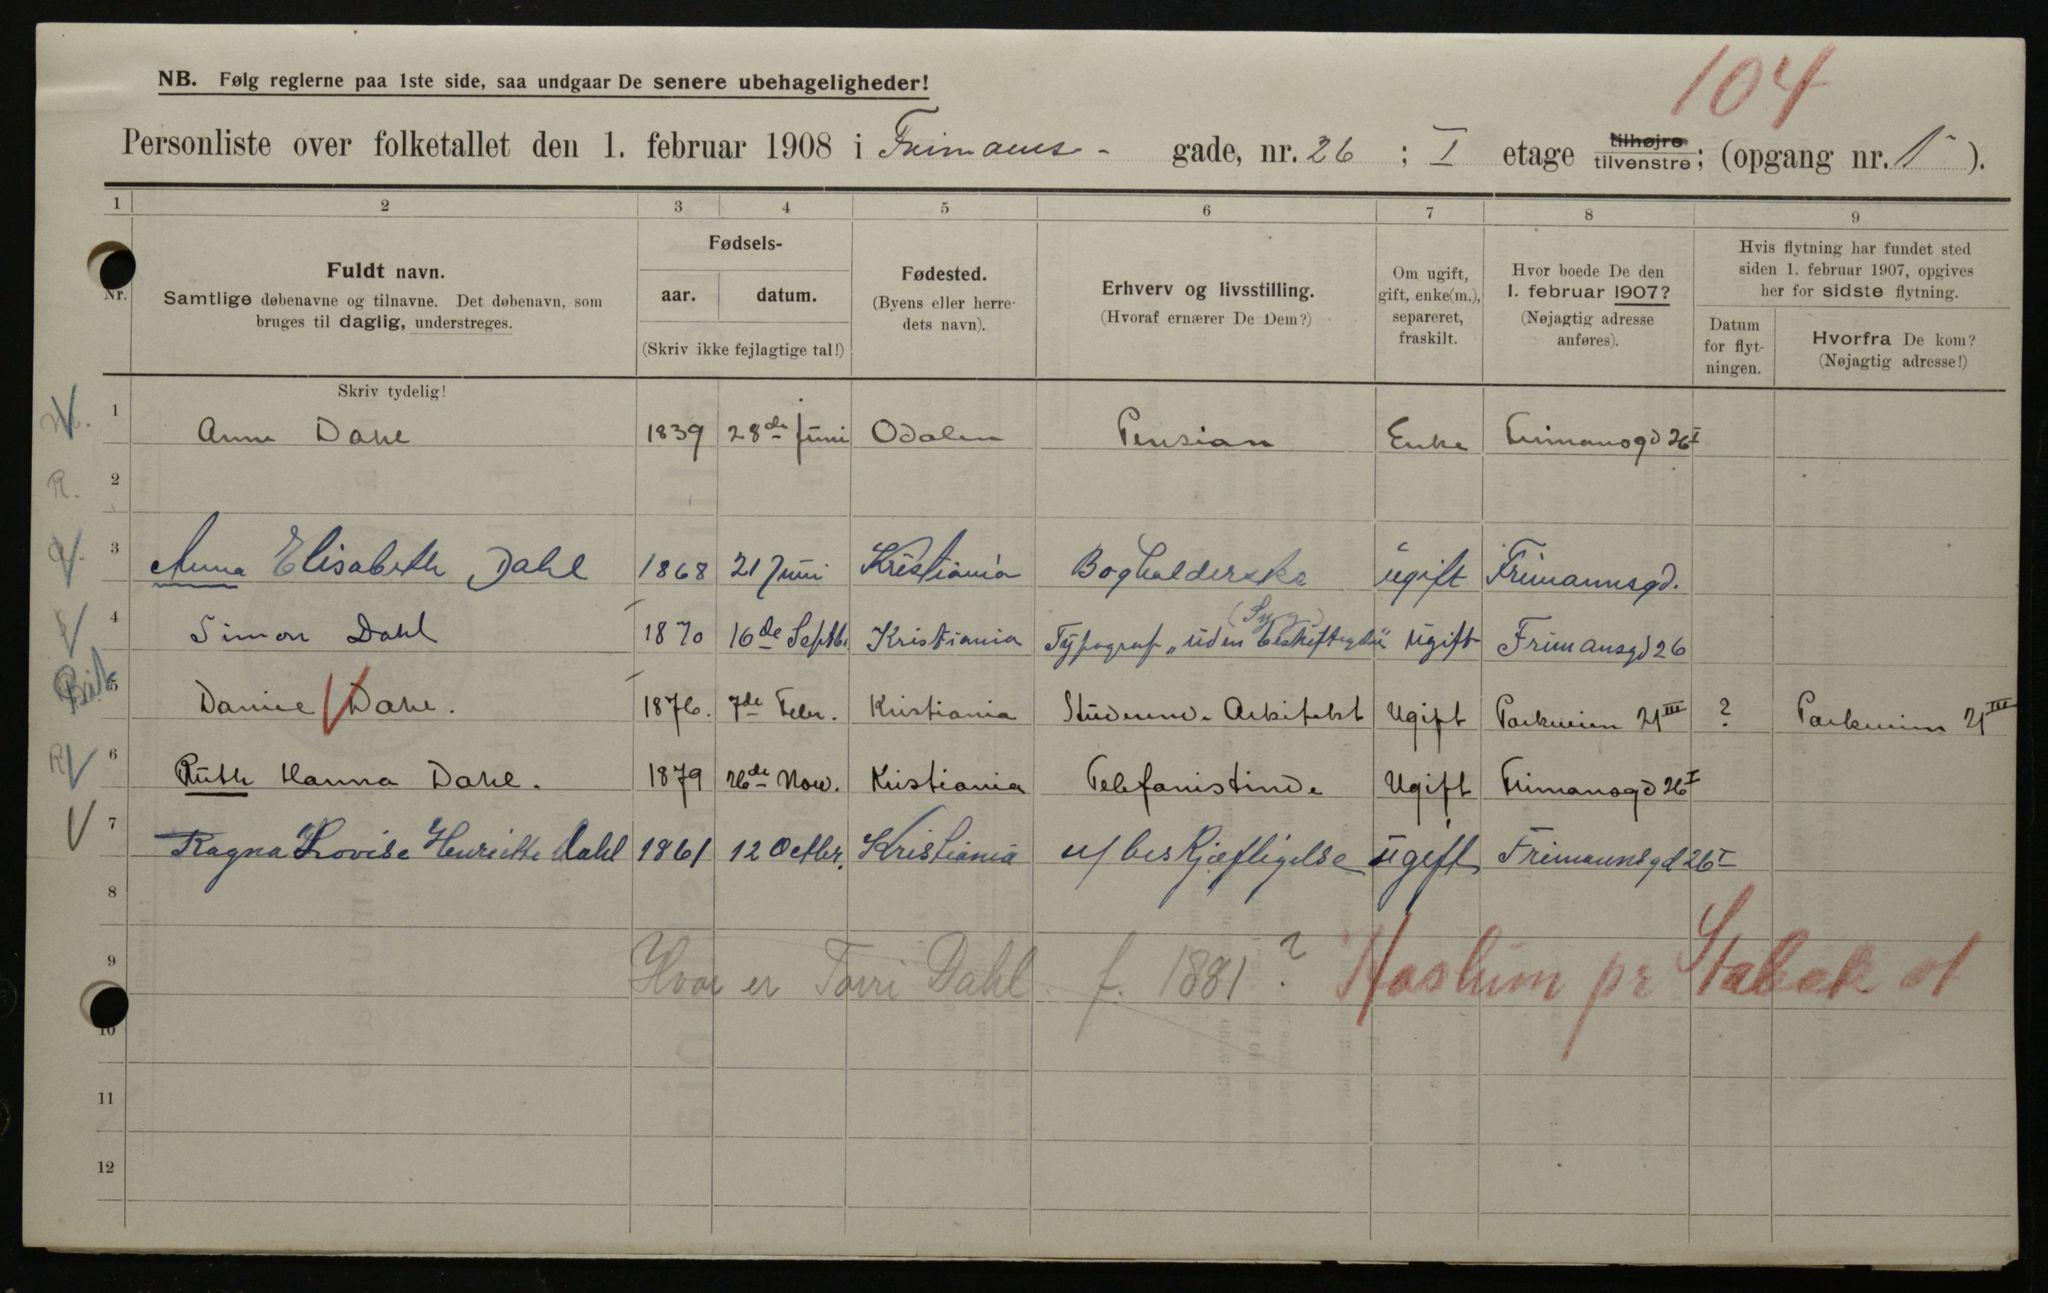 104
NB. Følg reglerne paa 1ste side, saa undgaar De senere ubehageligheder!
Personliste over folketallet den 1. februar 1908 i Frimanns- gade, nr. 26 ; I etage tilhøjre tilvenstre; (opgang nr. 1 ).
1 2 3 4 5 6 7 8 9
Nr.
Fuldt navn.
Samtlige døbenavne og tilnavne. Det døbenavn, som
bruges til daglig, understreges.
Fødsels-
aar. datum.
(Skriv ikke fejlagtige tal!)
Fødested.
(Byens eller herre-
dets navn).
Erhverv og livsstilling.
(Hvoraf ernærer De Dem?)
Om ugift,
gift, enke(m.),
separeret,
fraskilt.
Hvor boede De den
1. februar 1907?
(Nøjagtig adresse
anføres).
Hvis flytning har fundet sted
siden 1. februar 1907, opgives
her for sidste flytning.
Datum
for flyt-
ningen.
Hvorfra De kom?
(Nøjagtig adresse!)
Skriv tydelig!
1 Anne Dahl 1839 28de Juni Odalen Pension Enke Frimansgd 26 I
R. 2
3 Anna Elisabeth Dahl 1868 21 Juni Kristiania Bogholderske ugift Frimannsgd.
(Syg)
4 Simon Dahl 1870 16de Septbr Kristiania Typograf „uden beskjeftigelse" ugift Frimansgd 26
5 Daniel Dahl. 1876. 7de Febr. Kristiania Studerende Arkitekt Ugift Parkveien 21 III ? Parkveien 21 III
R 6 Ruth Hanna Dahl. 1879 26de Nov. Kristiania Telefonistinde Ugift Frimansgd 26 I
7 Ragna Lovise Henriette Dahl 1861 12 Octbr. Kristiania u/ beskjæftigelse ugift Frimannsgd 26 I
8
9 Hvor er Torri Dahl f. 1881? Haslum pr Stabæk st
10
11
12